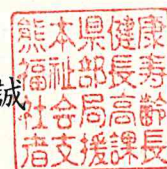 誠
熊本県健康
福祉部長寿
社会局高齢
者支援課長